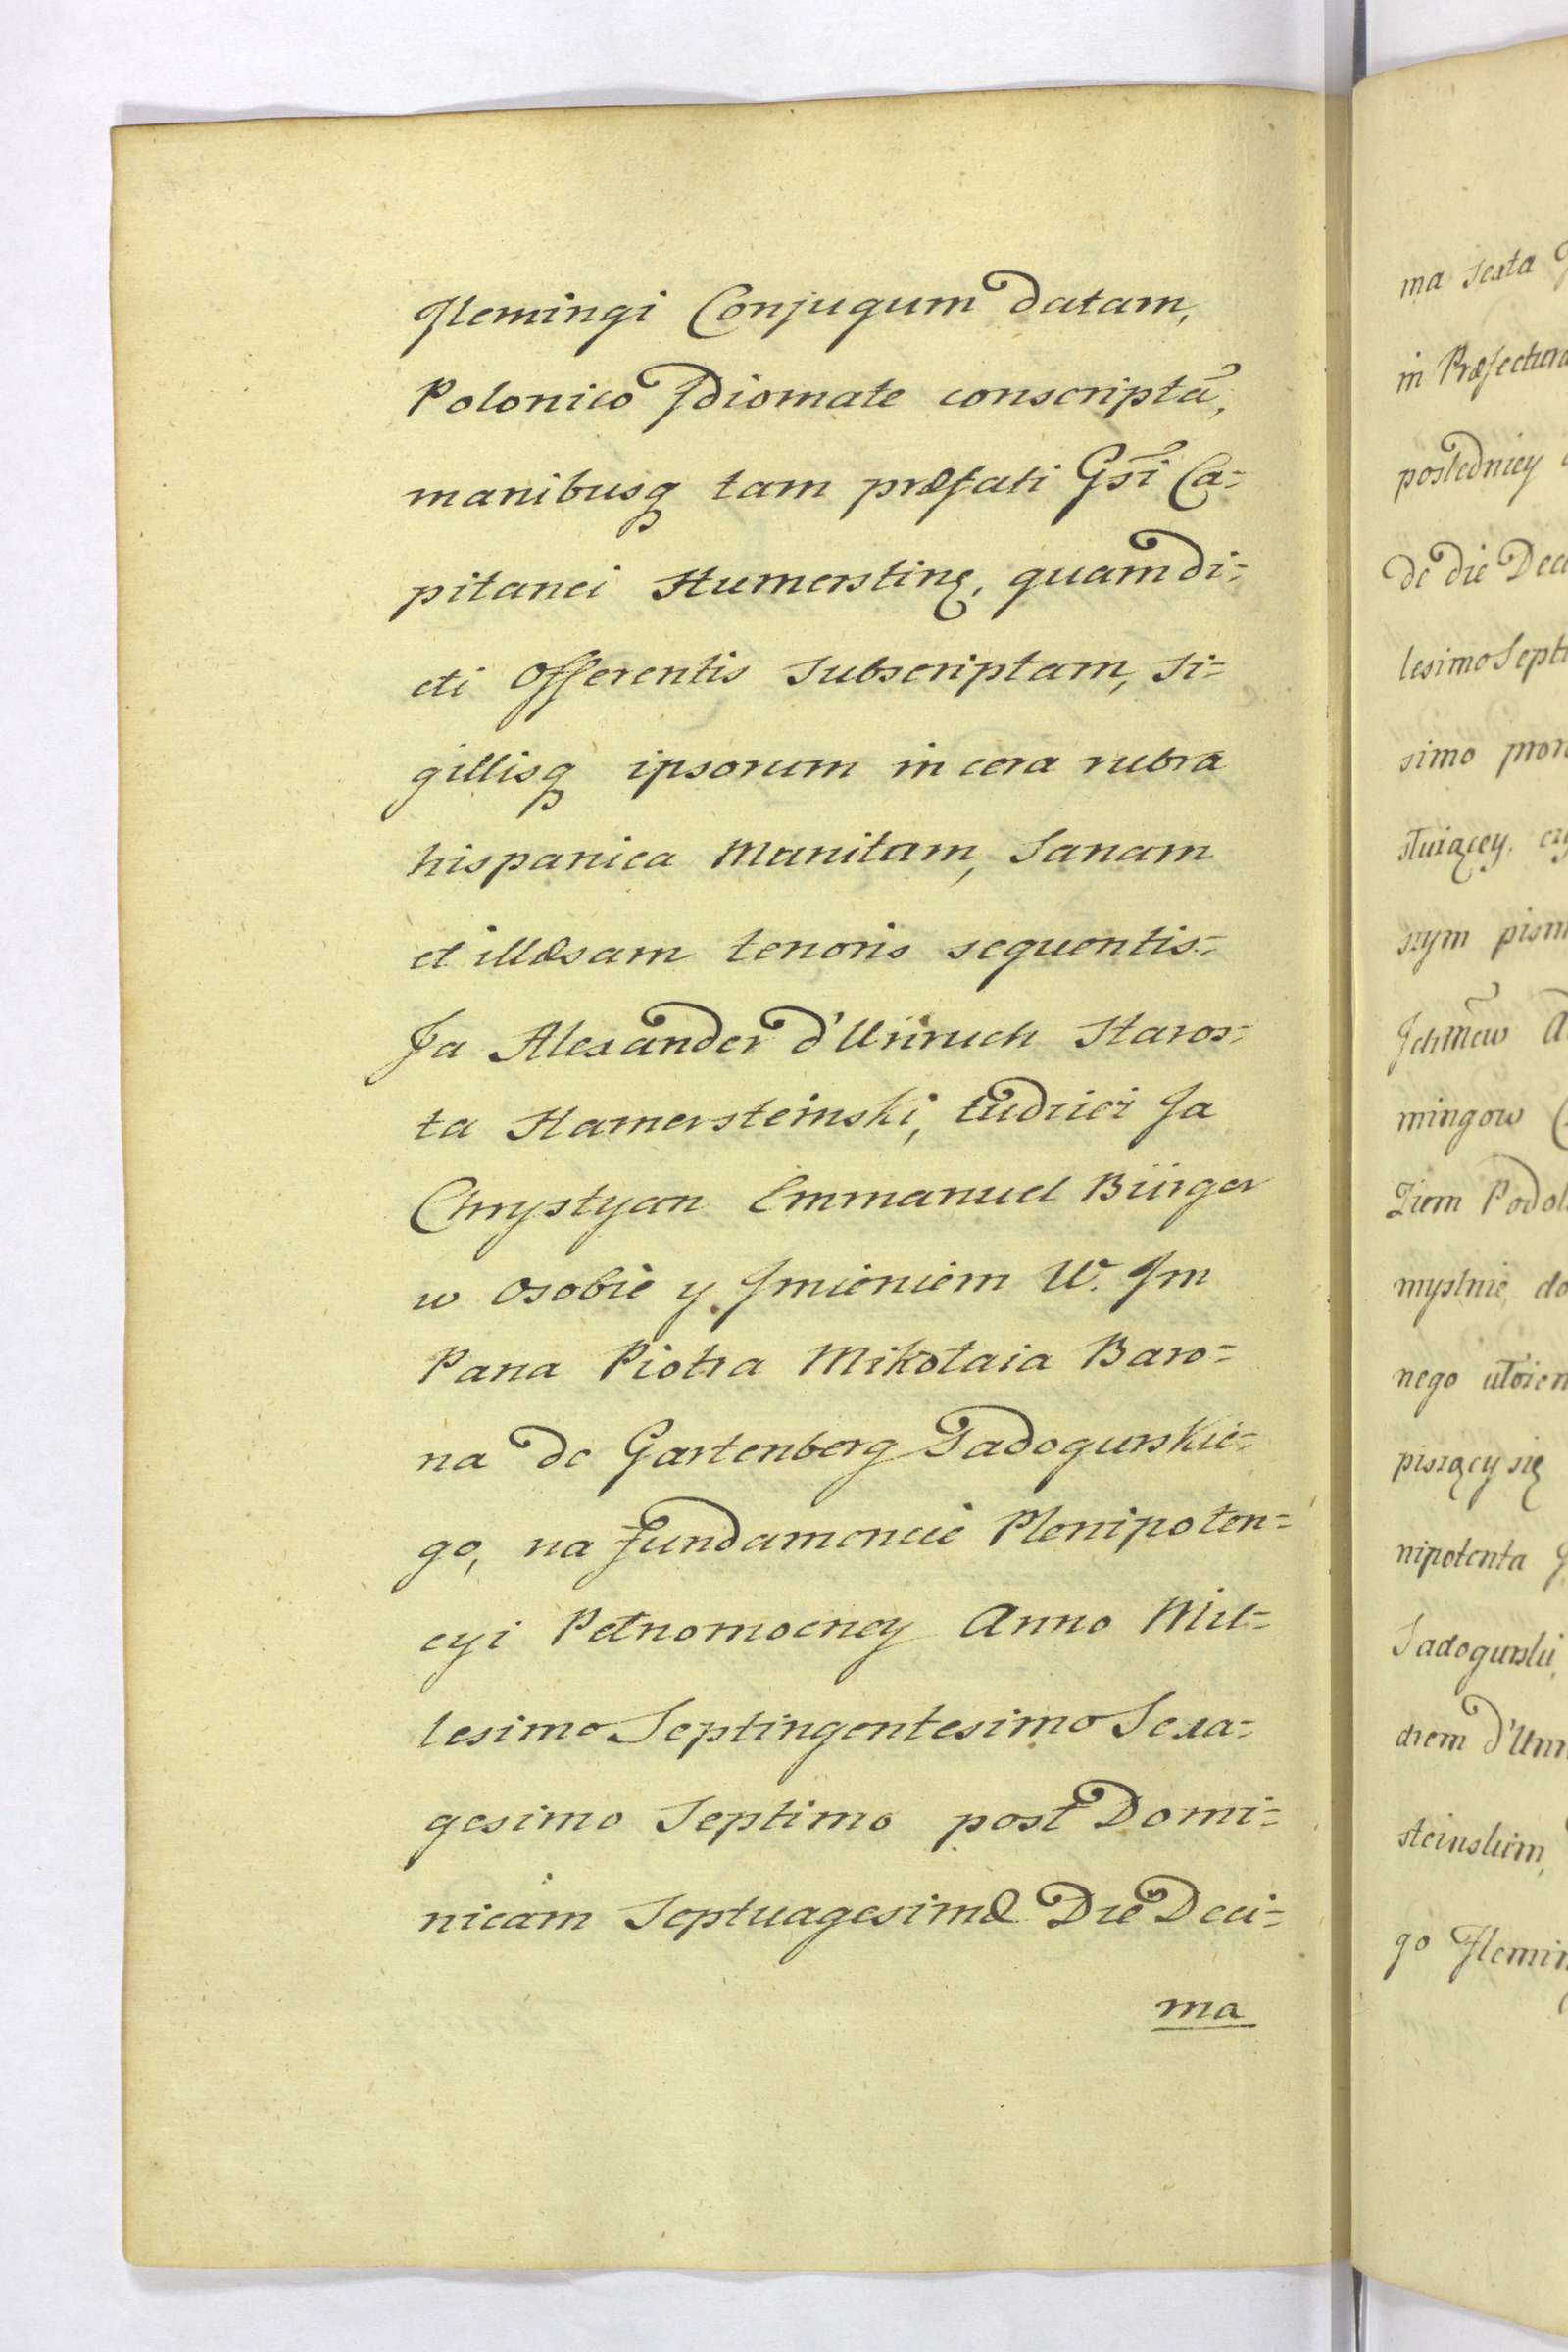 Flemingi Conjugum datam,
Polonico Idiomate conscriptã,
manibusq tam præfati Gsi Ca=
pitanei Humerstinę, quam di=
cti Offerentis Subscriptam, Si=
gillisq ipsorum in cera rubra
hispanica Munitam, Sanam
et illæsam tenoris sequentis.=
Ja Alexander d'Unruch Staros=
ta Hamersteinski, tudziez Ja
Chrystyan Emmanuel Bürger
w Osobie y Imieniem W. Im
Pana Piotra Mikołaia Baro=
na de Gartenberg Sadogurskie=
go, na fundamencie Plenipoten=
cyi Pełnomocney Anno Mil=
lesimo Septingentesimo Sexa=
gesimo Septimo post Domi=
nicam Septuagesimæ Die Deci=
ma
ma Sexta
in Præfectura
posledniey
de die Deci
lesimo Septi
simo
stuiącey.
szym pism
Ichmcw
mingow
Ziem Podol
myslnie do
nego
piszący się
nipotenta
Sadogurski,
drem d'Unr
steinskim,
go Flemin